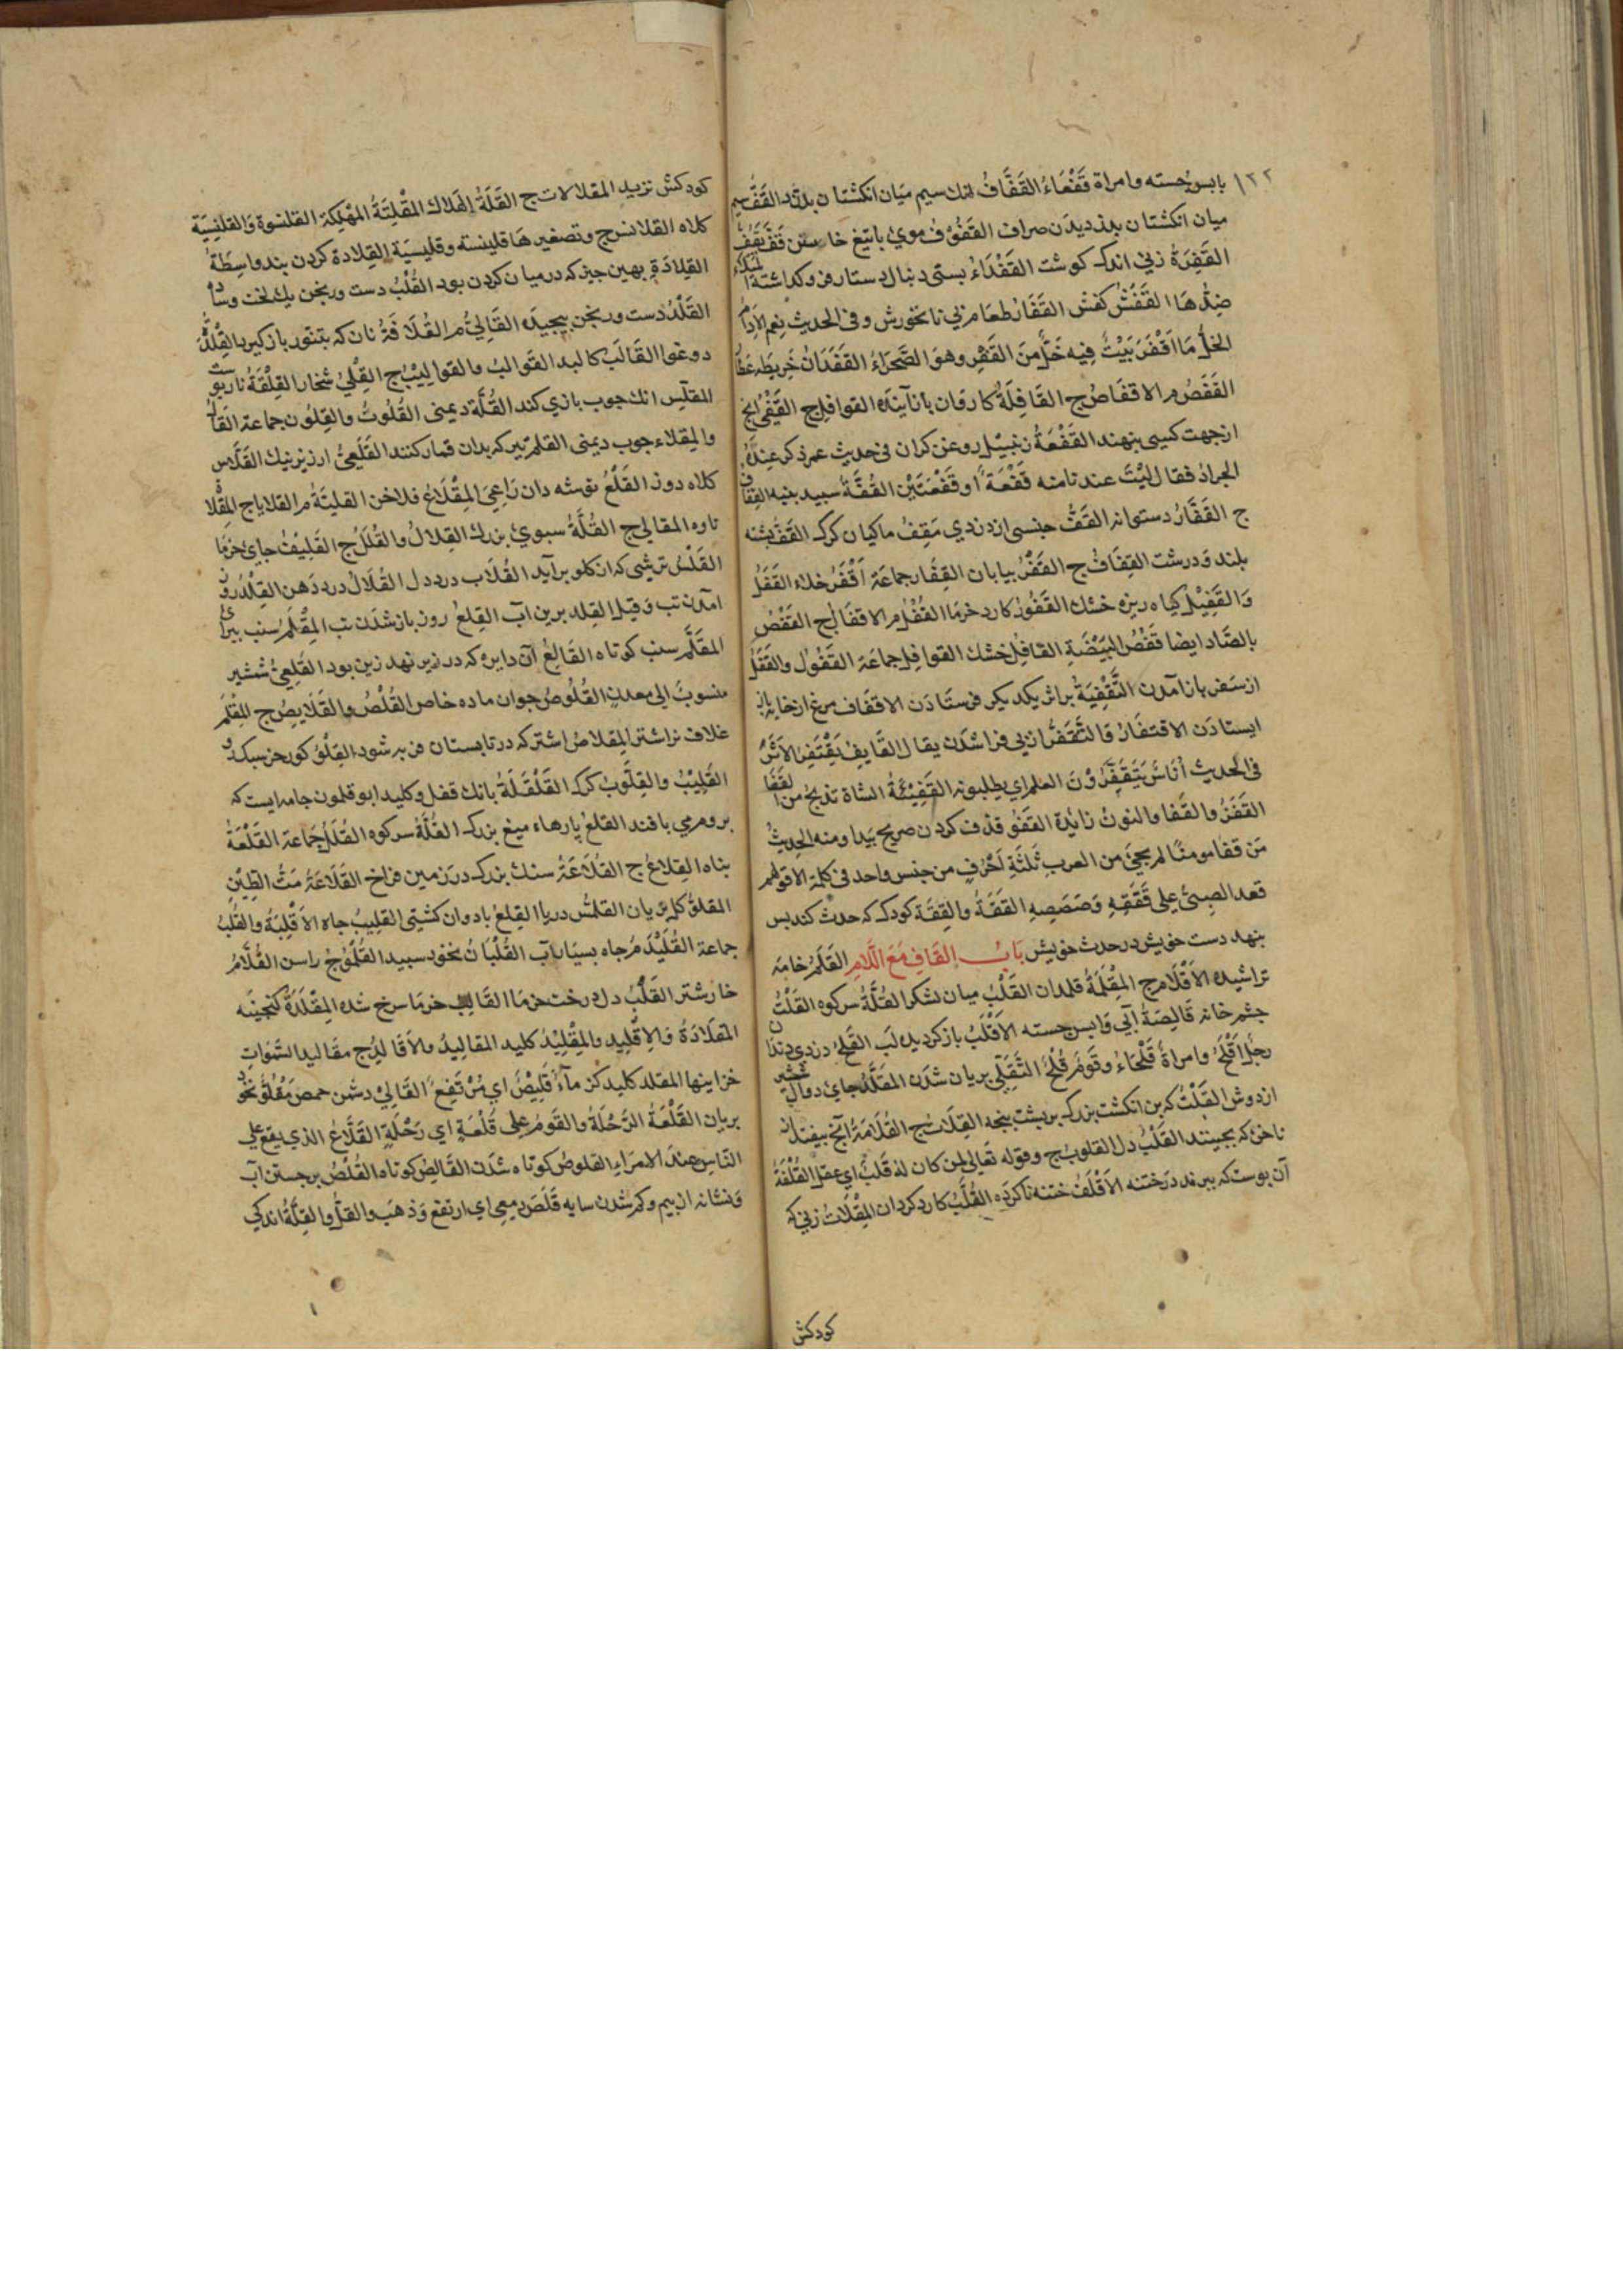 ١٢٢
بابس جسته وامراة قَفْعَاءُ القَفَّافُ انك سيم ميَان انكشتان بدزدد القَفُّ سيم
ميان انكشتان بدزديدن صراف القفوف موي باتيغ خاستن قَفَّ يَقُفُّ
القَفِرَةُ زني اندك كوشت القَفْدَاءُ بستى دنبال دستار فروكذاشته
ضِدُّهَا القَفْشُ كفش القَفَارُ طعام بي نانخورش وفى الحديث نِعم الاِدَامُ
الخلُّ مَا اَقْفَرَ بَيْتٌ فِيه خَلٌّ مِنَ القَفْرِ وهوَ الصَّحرَاءُ القَفَدَانُ خَرِيطَه عَطَّار
القَفَصُ م الاقفَاصُ ج القَافِلَةُ كاروان بازآينده القوافل ج القَفِيُّ انچ
ازجهت كسى بنهند القَفْعَةُ زنبيل روغن كران فى حديث عمر ذكر عِندَهُ
الجرادُ فقال ليْتَ عندنا منه قَفْعَةً او قَفْعَتَيْن القُفَّةُ سبيد بنبه القِفَافُ
ج القَفَّازُ دستوانه القَفُّ جنسى از دزدي مَقِفُ ماكيان كرك القُفُّ بشته
بلند ودرشت القِفَافُ ج القَفْرُ بيابان القِفَار جماعَة اَقْفَرُ خلاء القَفْلُ
وَالقَفِيْلُ كياه ريزه خشك القَفُّورُ كارد خرما القُفْلُ م الاقفَالُ ج القَفْصُ
بالصَّاد ايضا قَفْصُ البَيْضَةِ القافِلُ خشك القوافِل جماعَة القُفُولُ والقَفَلُ
ازسَفر بازآمدن التَّقْفِيَةُ براثر يكديكر فرستادَن الاقفَاف مرغ ازخايه باز
ايستادَن الاقتفَارُ وَالتَّقَفُّرُ ازپي فراشدن يقال القَايِفُ يَقْتَفِرُ الاَثَرَ
فى الحديث اُنَاسٌ يَتَقَفَّرُوْنَ العلم اي يطلبونه القَفِيْئَةُ الشاة تذبحُ من القَفَا
القَفَنُّ والقَفا والنونُ زائدة القَفْوُ قذف كردن صريح بَيدا ومنه الحديثُ
مَن قفَا مومنًا لم يجئ من العرب ثَلثَةُ اَحْرُفٍ من جنس واحد فى كلمة الا قولهم
قعد الصبىُّ على قَقَقِهِ وَصَصَصِهِ القَقَةُ والقِقَة كودك كه حدث كند بس
بنهد دست خويش در حدث خويش بَابُ القَافِ مَعَ اللَّامِ القَلَمُ خامه
تراشيده الاَقْلَام ج المِقْلَمَةُ قلمدان القَلْبُ ميان لشكر القُلَّةُ سر كوه القَلْتُ
چشم خانه قَالِصَةُ آبي وَابس جسته الاَقْلَبُ بازكرديده لَب القَلَحُ زردي دندان
رجُلٌ اَقْلَحُ وامراةٌ قَلْحَاءُ وقَومٌ قُلْحٌ التَّقَلِّي بريان شدَن المقَلَّدُ جاي دوال شمشير
ازدوش القَلْتُ كه بن انكشت بزرك برپشت پنجه القِلَاتُ ج القُلَامَةُ آنچ بيفتد از
ناخن كه بچينند القَلْبُ دل القلوبُ ج وقوله تعَالى لمن كان له قَلبٌ اي عقل القُلْفَةُ
آن پوست كه ببرند در ختنه الاَقْلَفُ ختنه ناكرده القُلَّبُ كارد كردان المِقْلَاتُ زني كه
كودكش
كودكش نزيد المقلالات ج القَلَةُ الهَلاك المَقْلَتَةُ المَهْلِكة القلنسوة وَالقلنْسِيَة
كلاه القلانس ج وتصغير هَا قلينسه وقليسيَة القِلادة كردن بند واسِطَةُ
القِلادَةِ بهين چيز كه درميان كردن بود القُلْبُ دست ورنجن يك لخت
القَلْدُ دست ورنجن پيچيده القَالِيُّ م القُلَافَةُ نان كه بتنور بازكيرد
دوغوا القَالَب كالبد القَوالبُ والقواليْبُ ج القِلْيُ شخار القِلْفَةُ
المقلِّس انك چوب بازي كند القُلَّة ديمنى القُلُوتُ والقِلُون جماعة
والمِقلاء چوب ديمنى القلم تير كه بدان قمار كنند القَلَعِيُّ ارزيز نيك القَلَّاس
كلاه دوز القَلْعُ توشه دان رَاعِي المِقْلَاعُ فلاخن القليَّةُ م القلايا ج المِقْلَا
تاوه المقالي ج القُلَّةُ سبويِ بزرك القِلالُ والقُلَلُ ج القَلِيفُ جاى خرما
القَلْسُ ترشى كه از كلو برآيد القُلَاب درد دل القُلَاعُ درد دَهن القِلْدُ روز
آمدن تب وَقيل القِلد برين آب القِلعُ روز بازشدن تب المِقْلَمُ سنب
المقَلَّم سنب كوتاه القَالِعُ آن دايره كه در زير نهد زين بود القَلَعِيُّ شمشير
منسوبٌ الى معدن القَلُوصُ جوان ماده خاص القُلُصُ والقَلَايِصُ ج المِقْلَم
غلاف نر اشتر المِقلاص اشتر كه در تابستان فربه شود القِلْوُ كورخر سبك رو
القِلِّيْبُ والقِلَّوبُ كرك القَلْقَلَةُ بانك قفل وكليد ابوقلمون جامه ايست كه
بروم مي بافند القَلَعُ پارهاء ميغ بزرك القُلَّةُ سر كوه القُلَلُ جَمَاعة القَلْعَةُ
بناه القِلاعُ ج القُلَاعَةُ سنك بزرك در زمين فراخ القَلَاعَةُ مَدَُّ الطِّيْنِ
المقلوُّ كليز بريان القلمَّس دريا القِلعُ بادوان كشتى القلِيبُ چاه الاَقْلِبَةُ والقُلُبُ
جماعة القَلَيْذَم چاه بسيار آب القُلْبَانُ نخود سبيد القِلَّوْجُ راسن القُلَّامُ
خار شتر القَلْبُ دل درخت خرما القَالِبُ خرما سرخ شده المِقْلَدَةُ كنجينه
المقلادَةُ وَالاِقْلِيد والمِقْلِيْدُ كليد المقاليدُ والاَقَالِيْدُ ج مقاليد السَّموات
خزاينها المقلد كليد كنز مآءٌ قَلِيْصٌ اي مُرْتَفِعٌ القَالِيْ دشمن حمص مَقْلُوٌّ نخود
بريان القَلْعَةُ الرَّحْلَةُ والقَومُ على قُلْعَةٍ اي رَحْلَةٍ القَلَّاعُ الذي يقع على
النَّاس عِندَ الامرَاءِ القلوصُ كوتاه شدَن القَالِصُ كوتاه القُلْصُ برجستن آب
وَنشانه از بيم وكم شدن سايه قَلَصَ دمعي اي ارتفع وَذهَبَ والقلُّ والقِلَّةُ اندكي